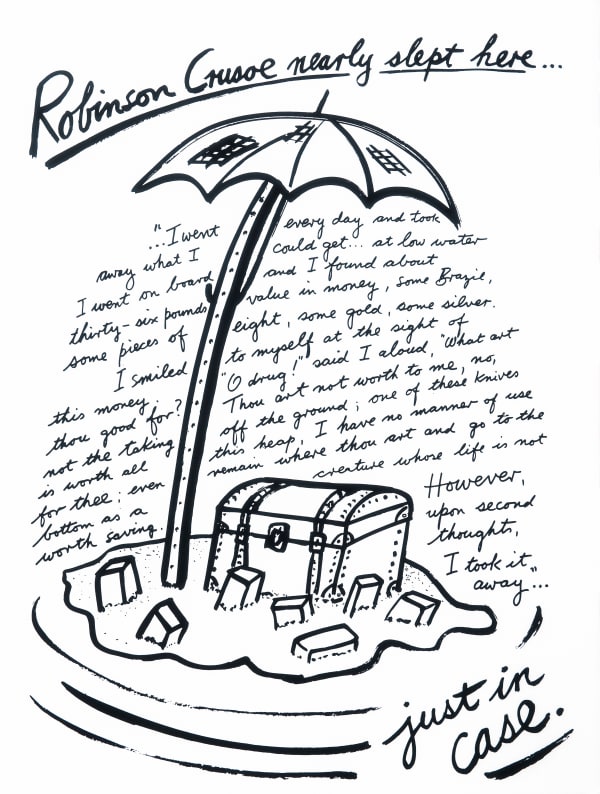 Robinson Crusoe nearly slept here...
"...I went every day and took
away what I could get... at low water
I went on board and I found about
thirty-six pounds value in money, some Brazil,
some pieces of eight, some gold, some silver.
I smiled to myself at the sight of
this money; "O drug!" said I aloud, "what art
thou good for? Thou art not worth to me, no,
not the taking off the ground; one of these knives
is worth all this heap, I have no manner of use
for thee; even remain where thou art and go to the
bottom as a creature whose life is not
worth saving.
However,
upon second
thoughts,
I took it
away"...
just in
case.